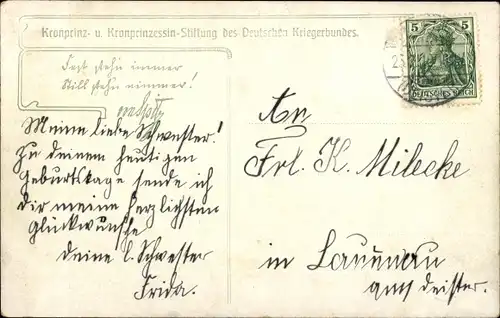 Kronprinz- u. Kronprinzessin-Stiftung des Deutschen Kriegerbundes.
Fest stehn immer
Still stehn nimmer!
Meine liebe Schwester!
Zu deinem heutigen
Geburtstage sende ich
dir meine herzlichsten
Glückwünsche
deine l. Schwester
Frida.
5 5
DEUTSCHES REICH
An
Frl. K. Milecke
in Lauenau
am Deister.